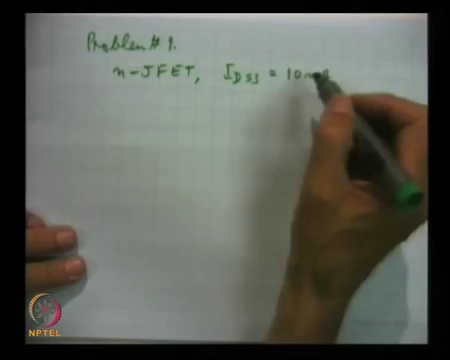 Problem # 1.
n-JFET, I_DSS = 10mA
NPTEL